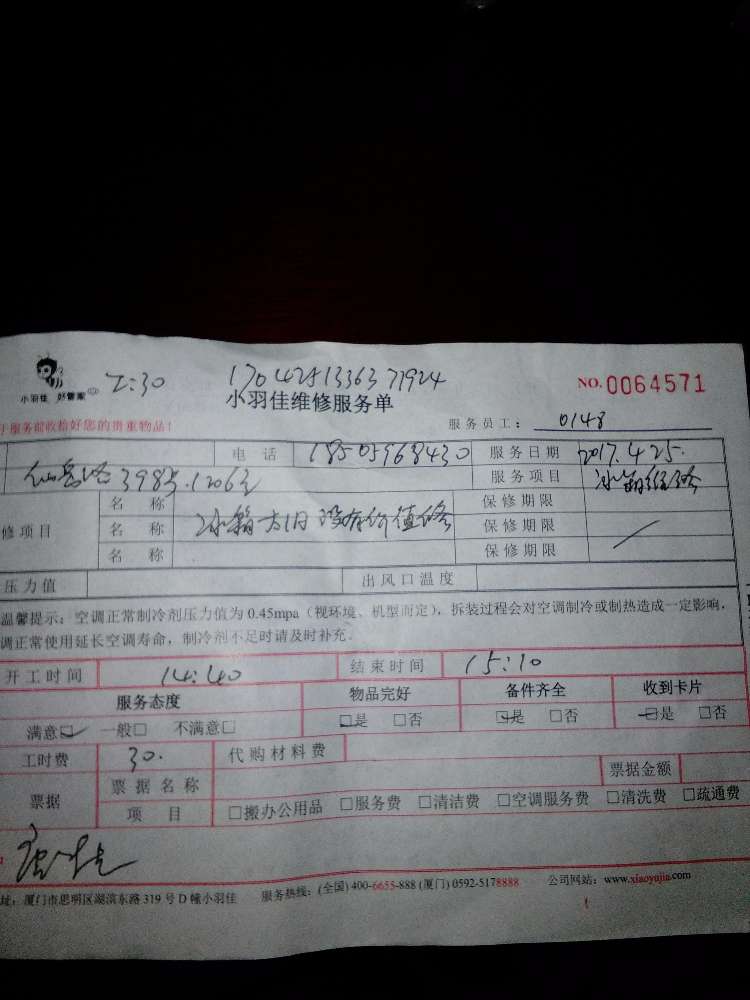 2:30 17042513363 71924 NO.0064571
小羽佳 好管家 小羽佳维修服务单
服务前收拾好您的贵重物品! 服务员工: 0148
电话 18505968430 服务日期 2017.4.25.
仙岳路3985.1206 服务项目 冰箱维修
名称 保修期限
修项目 名称 冰箱太旧没有价值修 保修期限
名称 保修期限
压力值 出风口温度
温馨提示:空调正常制冷剂压力值为0.45mpa(视环境、机型而定),拆装过程会对空调制冷或制热造成一定影响,
调正常使用延长空调寿命,制冷剂不足时请及时补充.
开工时间 14:40 结束时间 15:10
服务态度 物品完好 备件齐全 收到卡片
满意□ 一般□ 不满意□ □是 □否 □是 □否 □是 □否
工时费 30. 代购材料费
票据 票据名称 票据金额
项目 □搬办公用品 □服务费 □清洁费 □空调服务费 □清洗费 □疏通费
址:厦门市思明区湖滨东路319号D幢小羽佳 服务热线:(全国)400-6655-888(厦门)0592-5178888 公司网站:www.xiaoyujia.com